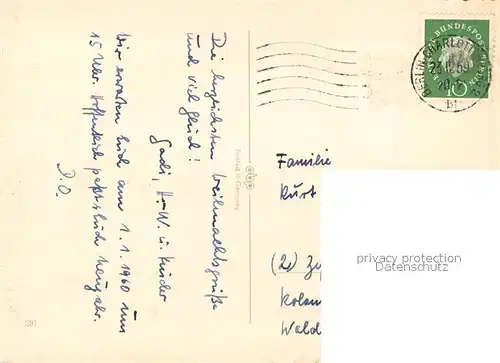 Die herzlichsten Weihnachtsgrüße
und viel Glück!
Gadi, H-W. u. Kinder
Wir erwarten Euch am 1.1.1960 um
15 Uhr. Hoffentlich
D.O.
Printed in Germany
281
DEUTSCHE BUNDESPOST BERLIN
10
BERLIN-CHARLOTTENBURG
23.12.59
Familie
Kurt
(2)
Wald
privacy protection
Datenschutz